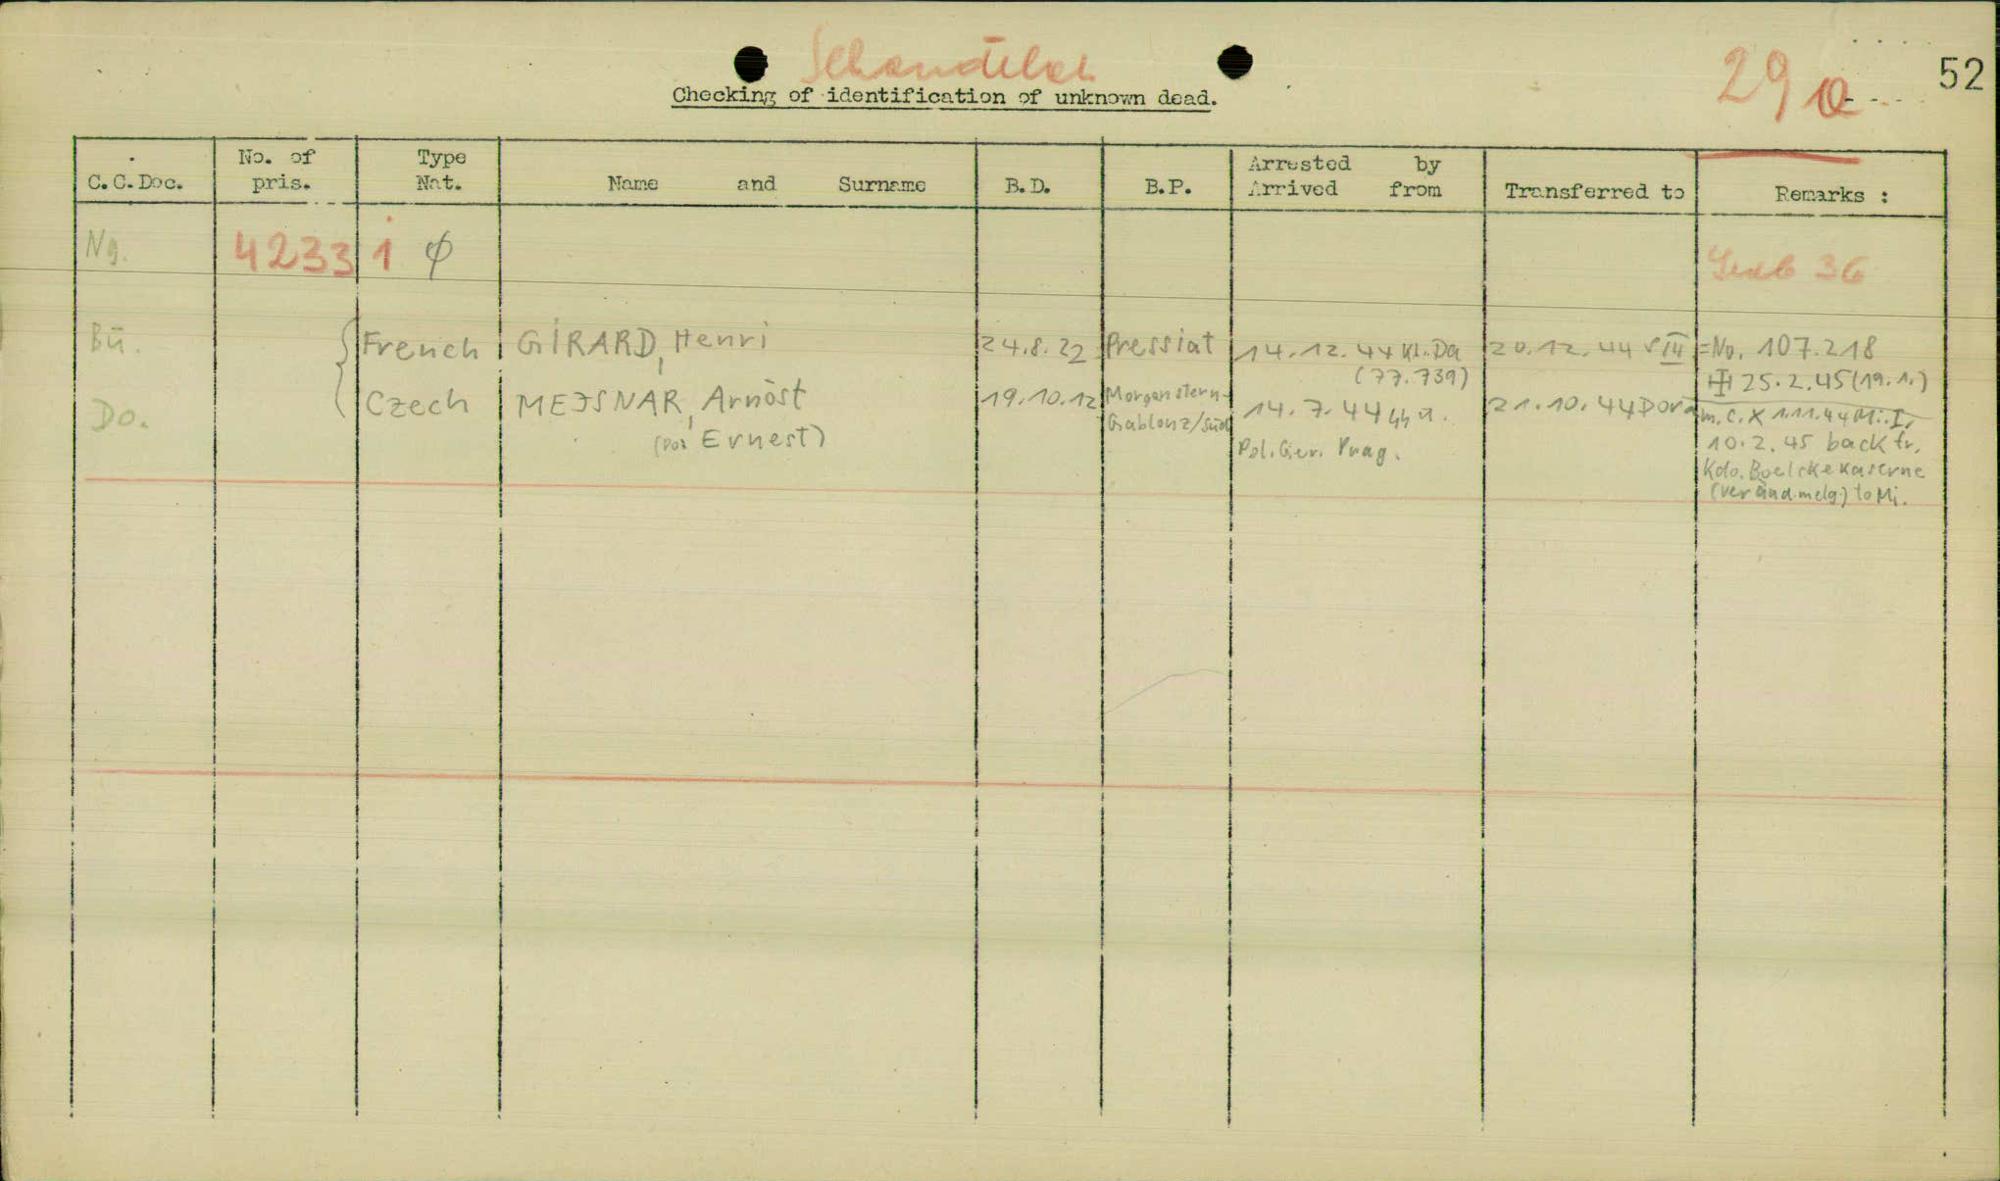 Schandelah
29a
52
Checking of identification of unknown dead.
C.C.Doc. No. of pris. Type Nat. Name and Surname B.D. B.P. Arrested by Arrived from Transferred to Remarks :
Ng. 4233 1 φ Grab 36
Bü. French GIRARD, Henri 24.8.22 Pressiat 14.12.44 Kl. Da (77.739) 20.12.44 S III =No. 107.218
25.2.45 (19.1.)
Do. Czech MEJSNAR, Arnošt 19.10.12 Morgenstern- 14.7.44 21.10.44 Dora m.c. X 1.11.44 Mi.
Ernest) Gablonz/Süd Pol. Ger. Prag. 10.2.45 back fr.
Kdo. Boelcke Kaserne
(Veränd.meldg.) to Mi.